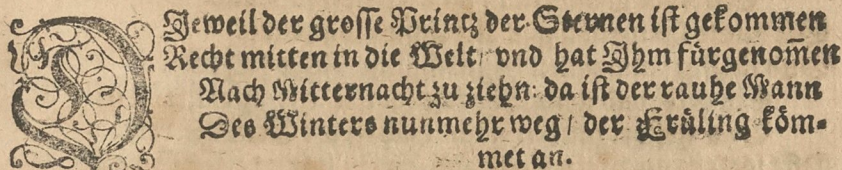 DJeweil der grosse Printz der Sternen ist gekommen
Recht mitten in die Welt / vnd hat Jhm fürgenom̃en
Nach Mitternacht zu ziehn: da ist der rauhe Mann
Des Winters nunmehr weg / der Früling köm-
met an.